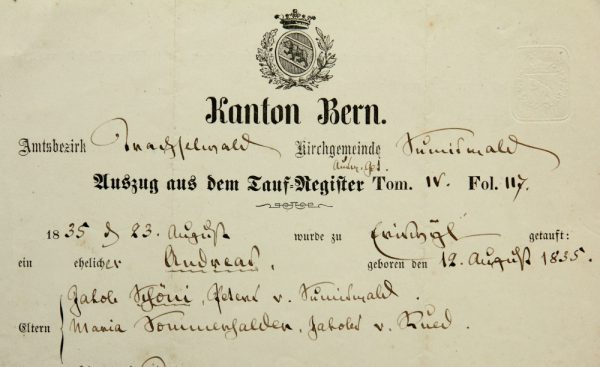 Kanton Bern.
Amtsbezirk Trachselwald Kirchgemeinde Sumiswald
Auszug aus dem Tauf-Register Tom. IV. Fol. 117.
1835 d 23. August wurde zu getauft:
ein ehelicher Andreas, geboren den 12. August 1835.
Jakob Schöni, Peters v. Sumiswald.
Eltern
Maria Sommerhalder, Jakobs v. Rued.